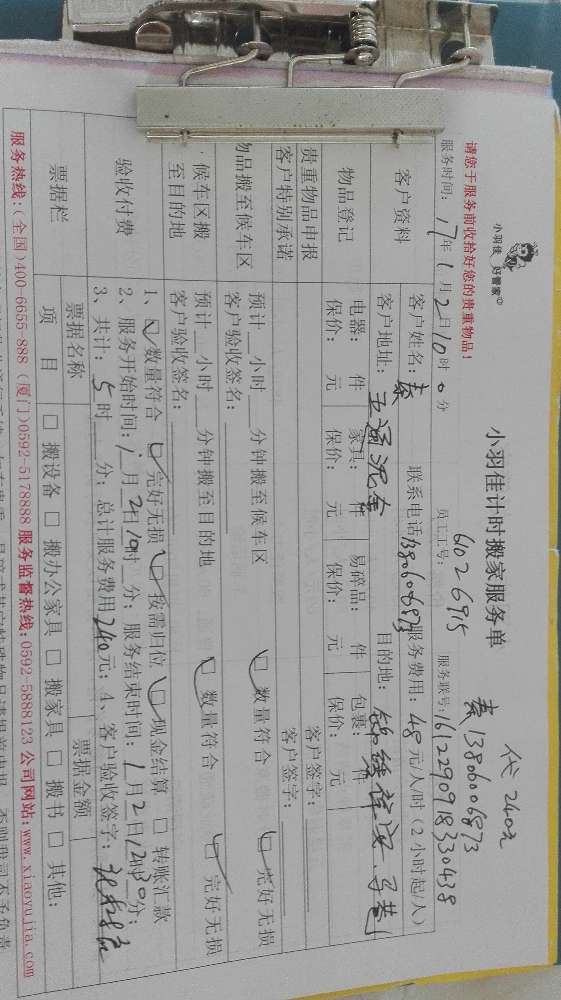 小羽佳 好管家
小羽佳计时搬家服务单
代 240元
秦13806006873
请您于服务前收拾好您的贵重物品!
6026915
服务时间: 17年1月2日10时0分 员工工号: 服务联号: 1612290918330438
客户资料
客户姓名: 秦 联系电话13806006873服务费用: 48元/人/时(2小时起/人)
客户地址: 目的地:
物品登记
电器: 件 家具: 件 易碎品: 件 包裹: 件
保价: 元 保价: 元 保价: 元 保价: 元
贵重物品申报 客户签字:
客户特别承诺 客户签字:
物品搬至候车区
预计 小时 分钟搬至候车区 数量符合 完好无损
客户验收签名:
候车区搬至目的地
预计 小时 分钟搬至目的地 数量符合 完好无损
客户验收签名:
验收付费
1、 数量符合 完好无损 按需归位 现金结算 □ 转账汇款
2、服务开始时间: 1月2日10时 分; 服务结束时间: 1月2日12时30分;
3、共计: 5时 分; 总计服务费用240元; 4、客户验收签字:
票据栏
票据名称 票据金额
项 目 □ 搬设备 □ 搬办公家具 □ 搬家具 □ 搬书 □ 其他:
服务热线: (全国)400-6655-888 (厦门)0592-5178888 服务监督热线: 0592-5888123 公司网站: www.xiaoyujia.com